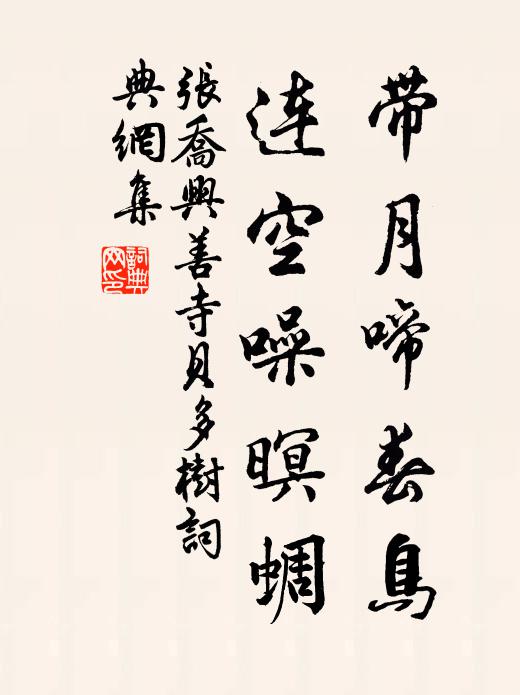 帶月啼春鳥
連空噪暝蜩
張喬興善寺貝多樹詞
典網集
詞典
网印